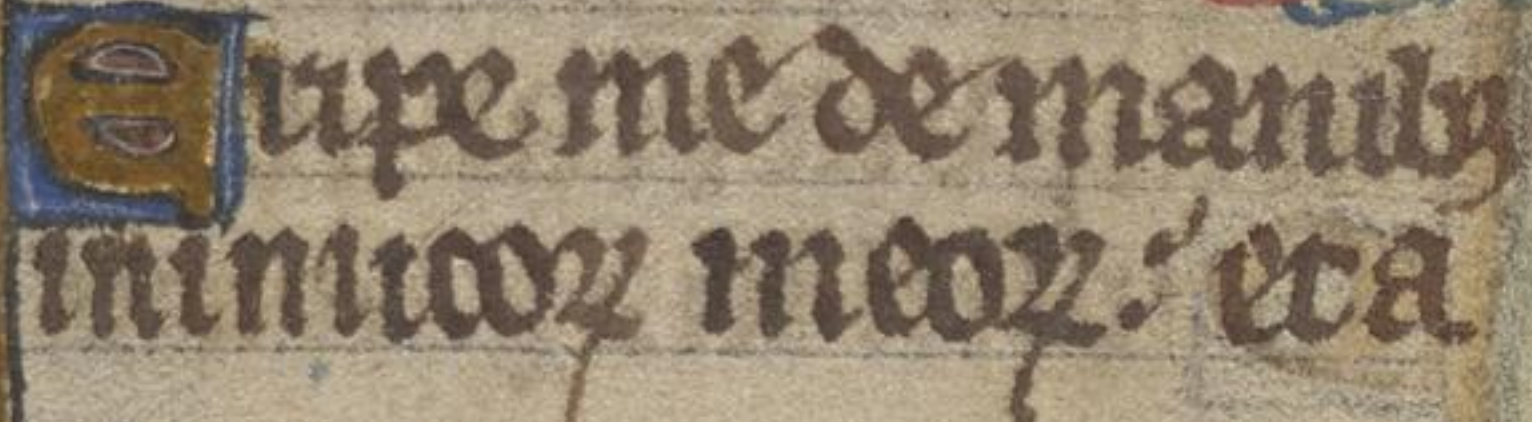 Eripe me de manibꝰ
inimicoꝝ meoꝝ: et a